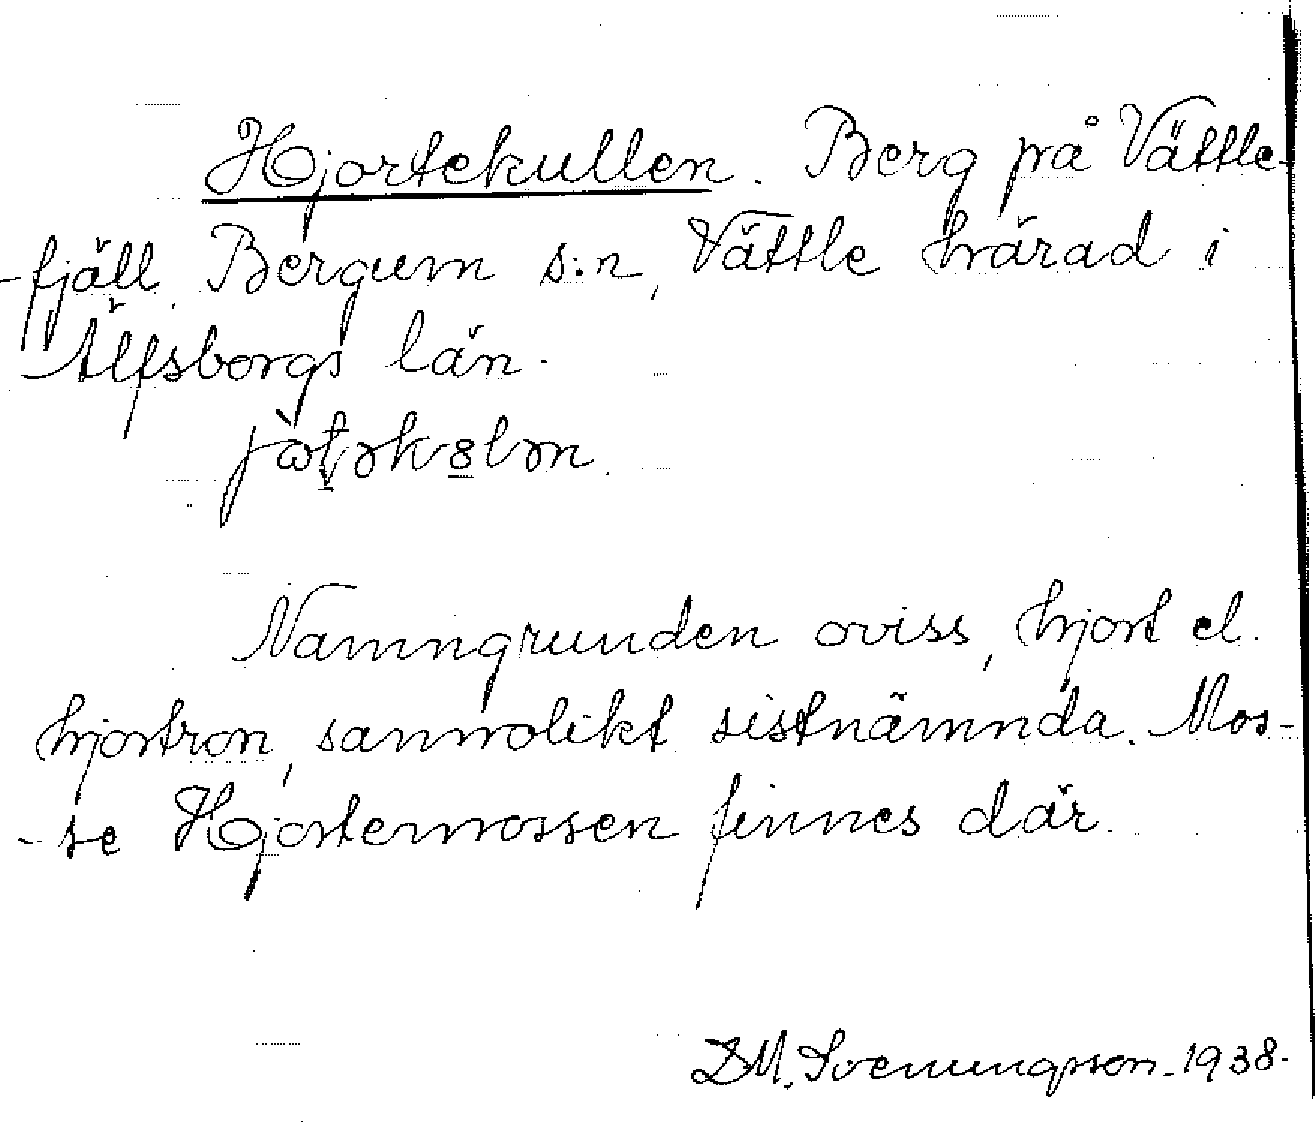 Hjortekullen. Berg på Vättle-
-fjäll, Bergum s:n, Vättle härad i
Älfsborgs län.
Namngrunden oviss, hjort el.
hjortron, sannolikt sistnämnda. Mos-
-se Hjortemossen finnes där.
D.M. Svenungsson. 1938.